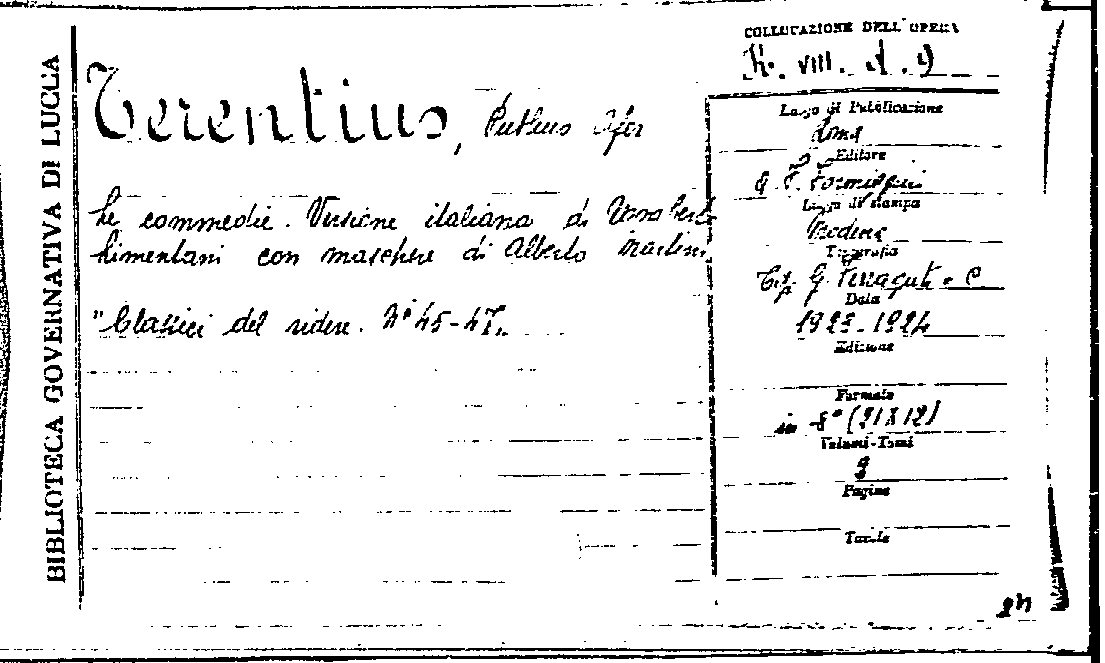 BIBLIOTECA GOVERNATIVA DI LUCCA
Terentius, Publius Afer
Le commedie. Versione italiana di Umberto
Limentani con maschere di Alberto Martini.
"Classici del ridere. N° 45-47"
COLLOCAZIONE DELL'OPERA
VIII.
Luogo di Pubblicazione
Roma
Editore
A. F. Formiggini
Luogo di stampa
Modena
Tipografia
Tip. G. Ferraguti e C.
Data
1923-1924
Edizione
Formato
in 8° (21X12)
Volumi-Tomi
3
Pagine
Tavole